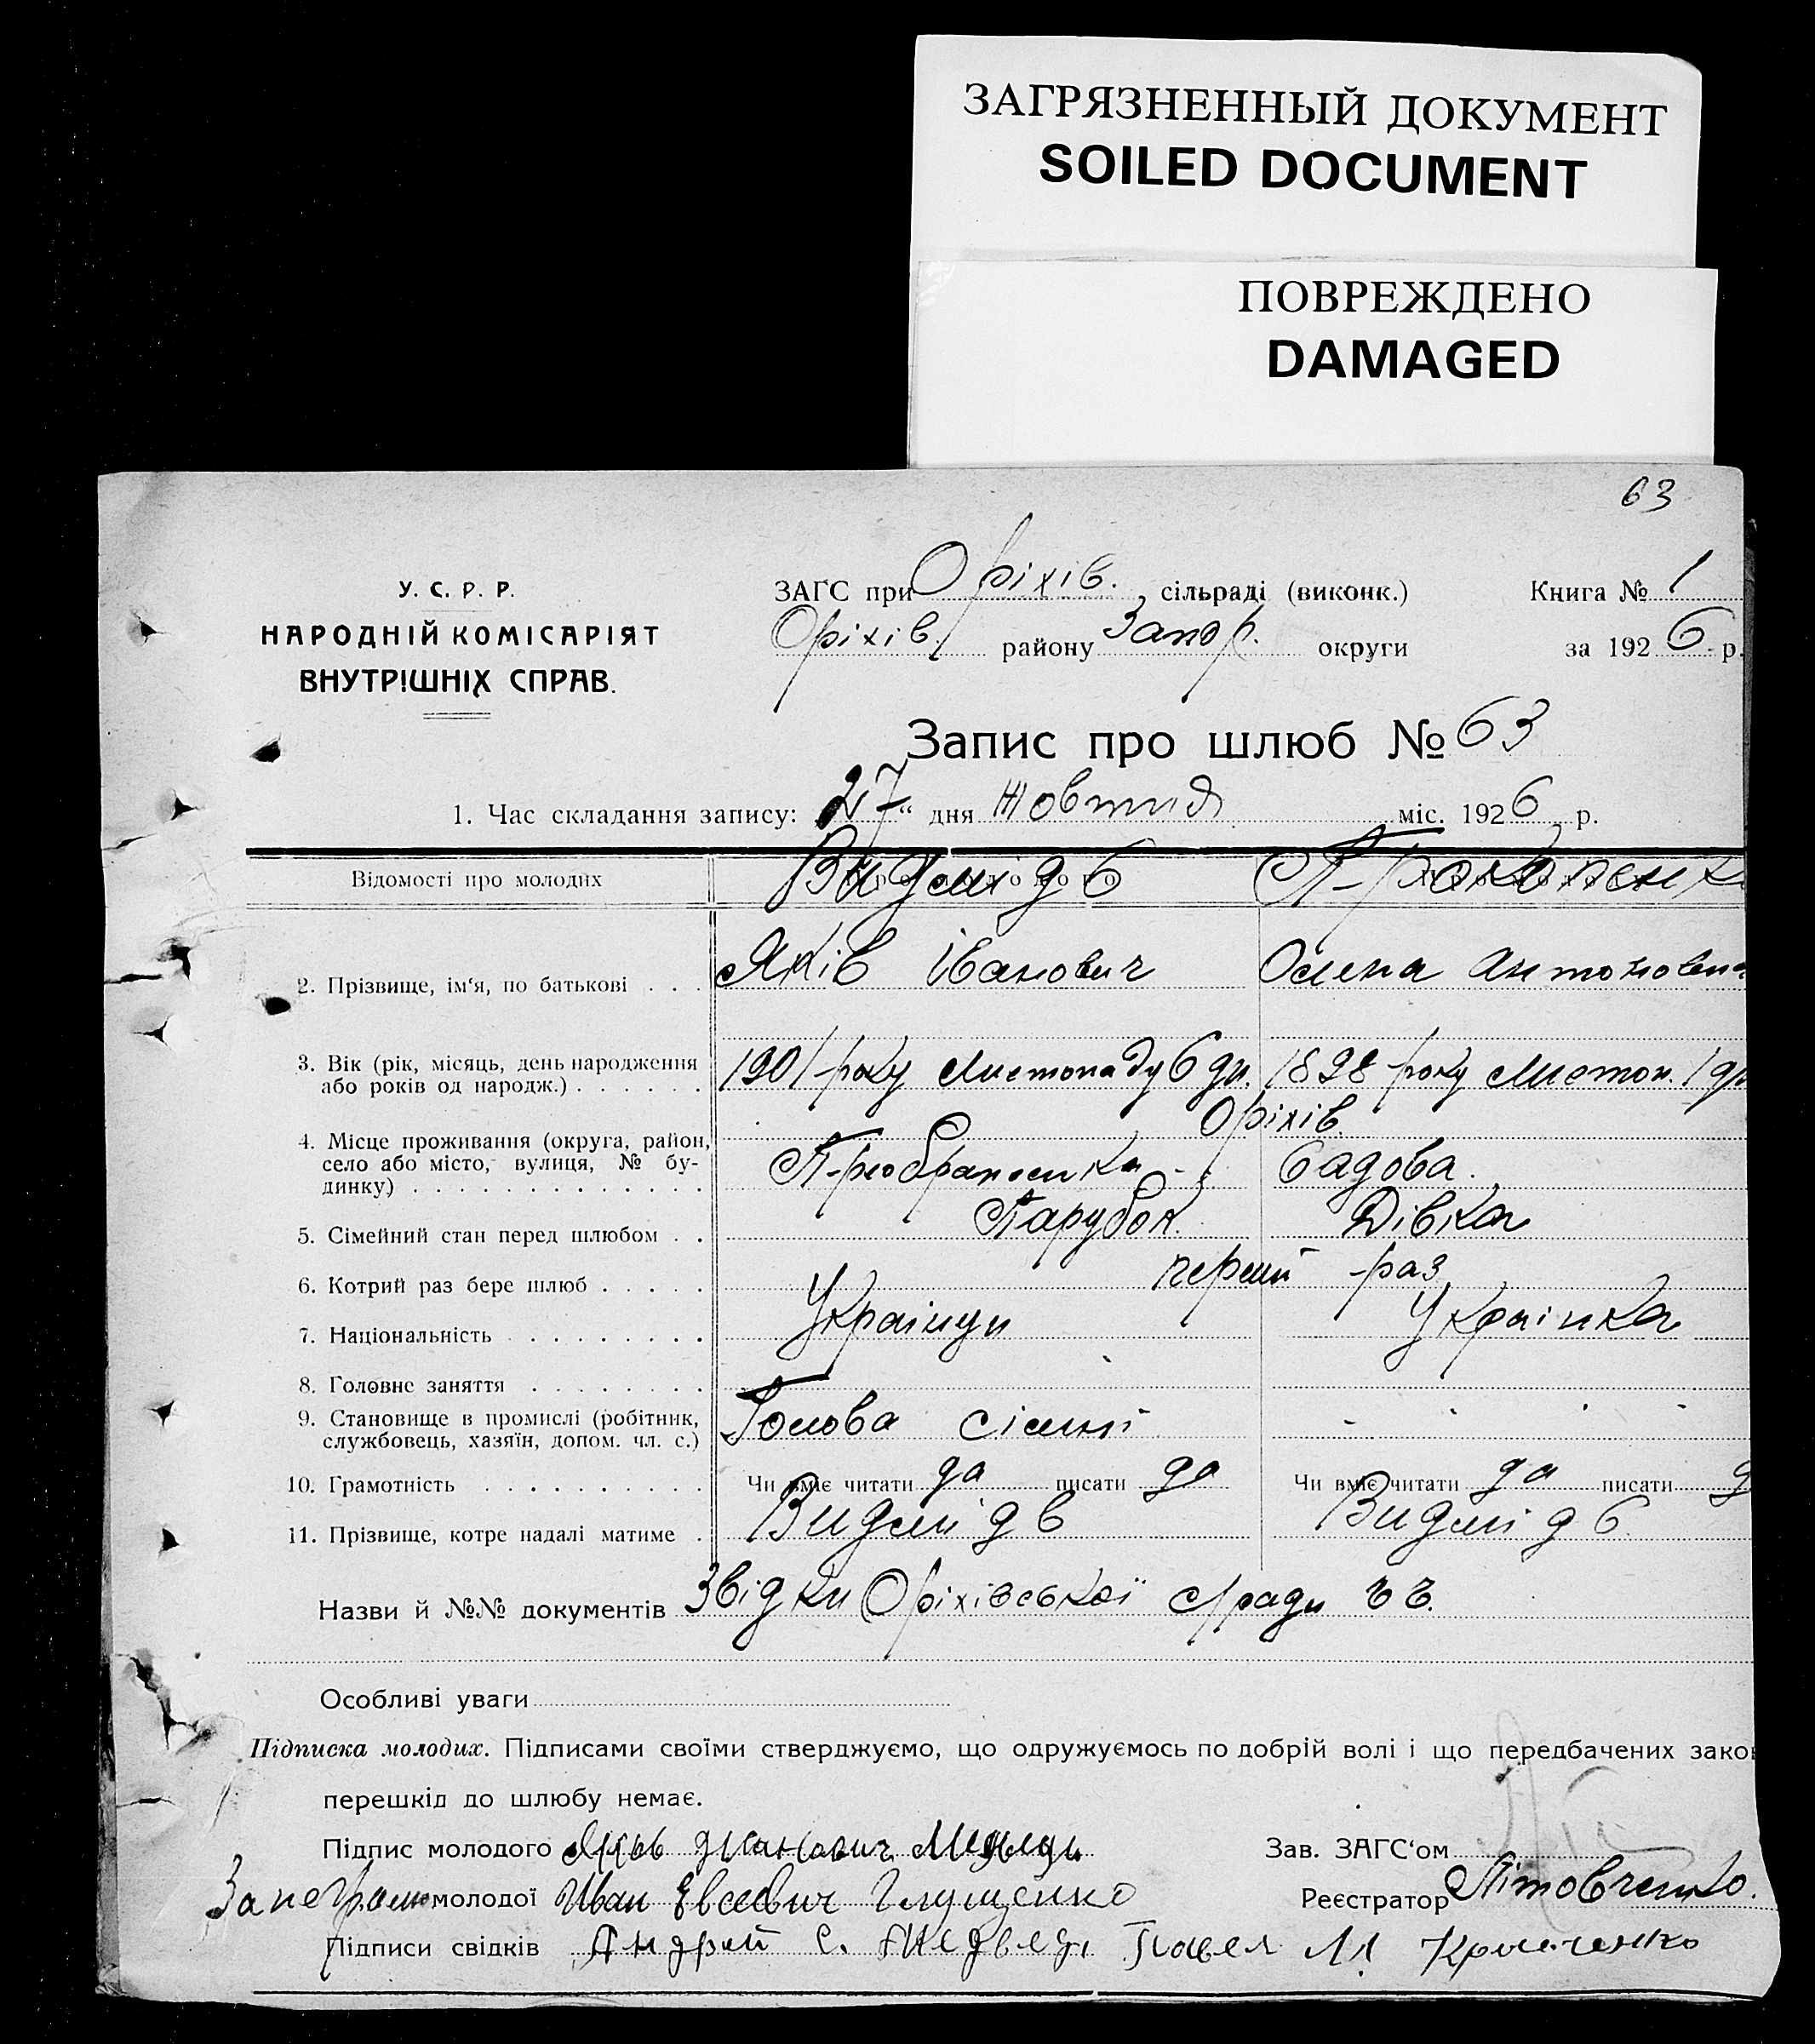 ЗАГРЯЗНЕННЫЙ ДОКУМЕНТ
SOILED DOCUMENT
ПОВРЕЖДЕНО
DAMAGED
63
У. С. Р. Р.
НАРОДНІЙ КОМІСАРІЯТ
ВНУТРІШНІХ СПРАВ.
ЗАГС при Оріхів. сільраді (виконк.) Книга № 1
Оріхів. району Запор. округи за 1926 р.
Запис про шлюб № 63
1. Час складання запису: 27 “ дня жовтня міс. 1926 р.
Відомості про молодих
2. Прізвище, ім‘я, по батькові . . . Яків Іванович Олена Антоновна
3. Вік (рік, місяць, день народження
або років од народж.) . . . . . . 1901 року Листопаду 6 дн. 1898 року Листоп. 1 дн
Оріхів.
4. Місце проживання (округа, район,
село або місто, вулиця, № бу-
динку) . . . . . . . . . . . . . Садова.
5. Сімейний стан перед шлюбом . . Парубок. Дівка
6. Котрий раз бере шлюб . . . . . перший раз
7. Національність . . . . . . . . Українци Українка
8. Головне заняття . . . . . . . .
9. Становище в промислі (робітник,
службовець, хазяїн, допом. чл. с.) Голова сімьї
10. Грамотність . . . . . . . . . . Чи вміє читати да писати да Чи вміє читати да писати д
11. Прізвище, котре надалі матиме .
Назви й №№ документів Звідки Оріхівської с/ради
Особливі уваги
Підписка молодих. Підписами своїми стверджуємо, що одружуємось по добрій волі і що передбачених зако
перешкід до шлюбу немає.
Підпис молодого Зав. ЗАГС‘ом
молодої Иван Глущенко Реєстратор
Підписи свідків Андрей С. Медведь Павел